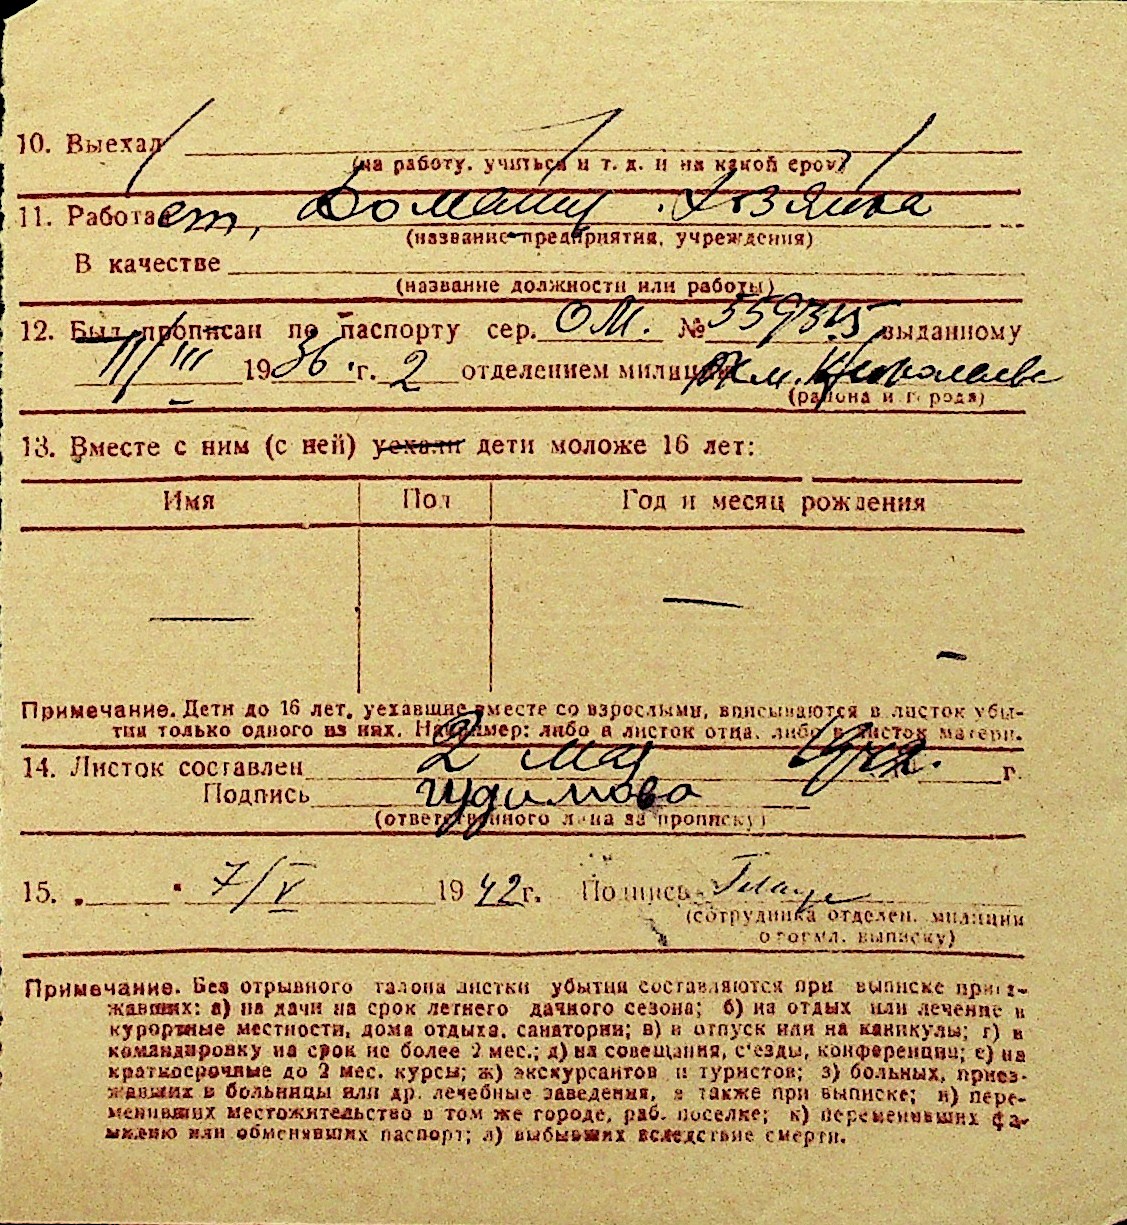 10. Выехал
(на работу, учиться и т. д. и на какой срок)
11. Работает, Домашн. хозяйка
(название предприятия, учреждения)
В качестве
(название должности или работы)
12. Был прописан по паспорту сер. ОМ. № 559315 выданному
11/III 1936 г. 2 отделением милиции г. Николаева
(района и города)
13. Вместе с ним (с ней) уехали дети моложе 16 лет:
Имя Пол Год и месяц рождения
— —
Примечание. Дети до 16 лет, уехавшие вместе со взрослыми, вписываются в листок убы-
тия только одного из них. Например: либо в листок отца, либо в листок матери.
14. Листок составлен 2 мая 1942. г.
Подпись Гудимова
(ответственного лица за прописку)
15. „ " 7/V 1942 г. Подпись
(сотрудника отделен. милиции
оформл. выписку)
Примечание. Без отрывного талона листки убытия составляются при выписке приез-
жавших: а) на дачи на срок летнего дачного сезона; б) на отдых или лечение в
курортные местности, дома отдыха, санатории; в) в отпуск или на каникулы; г) в
командировку на срок не более 2 мес.; д) на совещания, с'езды, конференции; е) на
краткосрочные до 2 мес. курсы; ж) экскурсантов и туристов; з) больных, приез-
жавших в больницы или др. лечебные заведения, а также при выписке; и) пере-
менивших местожительство в том же городе, раб. поселке; к) переменивших фа-
милию или обменявших паспорт; л) выбывших вследствие смерти.